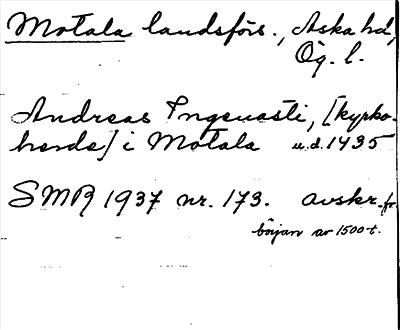 Motala landsförs., Aska hd,
Ög. l.
Andreas Ingeuasti, [kyrko-
herde] i Motala u.d. 1435
SMR 1937 nr. 173. avskr. fr.
början av 1500-t.